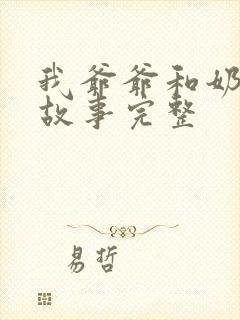 我爷爷和奶
故事完整
易哲